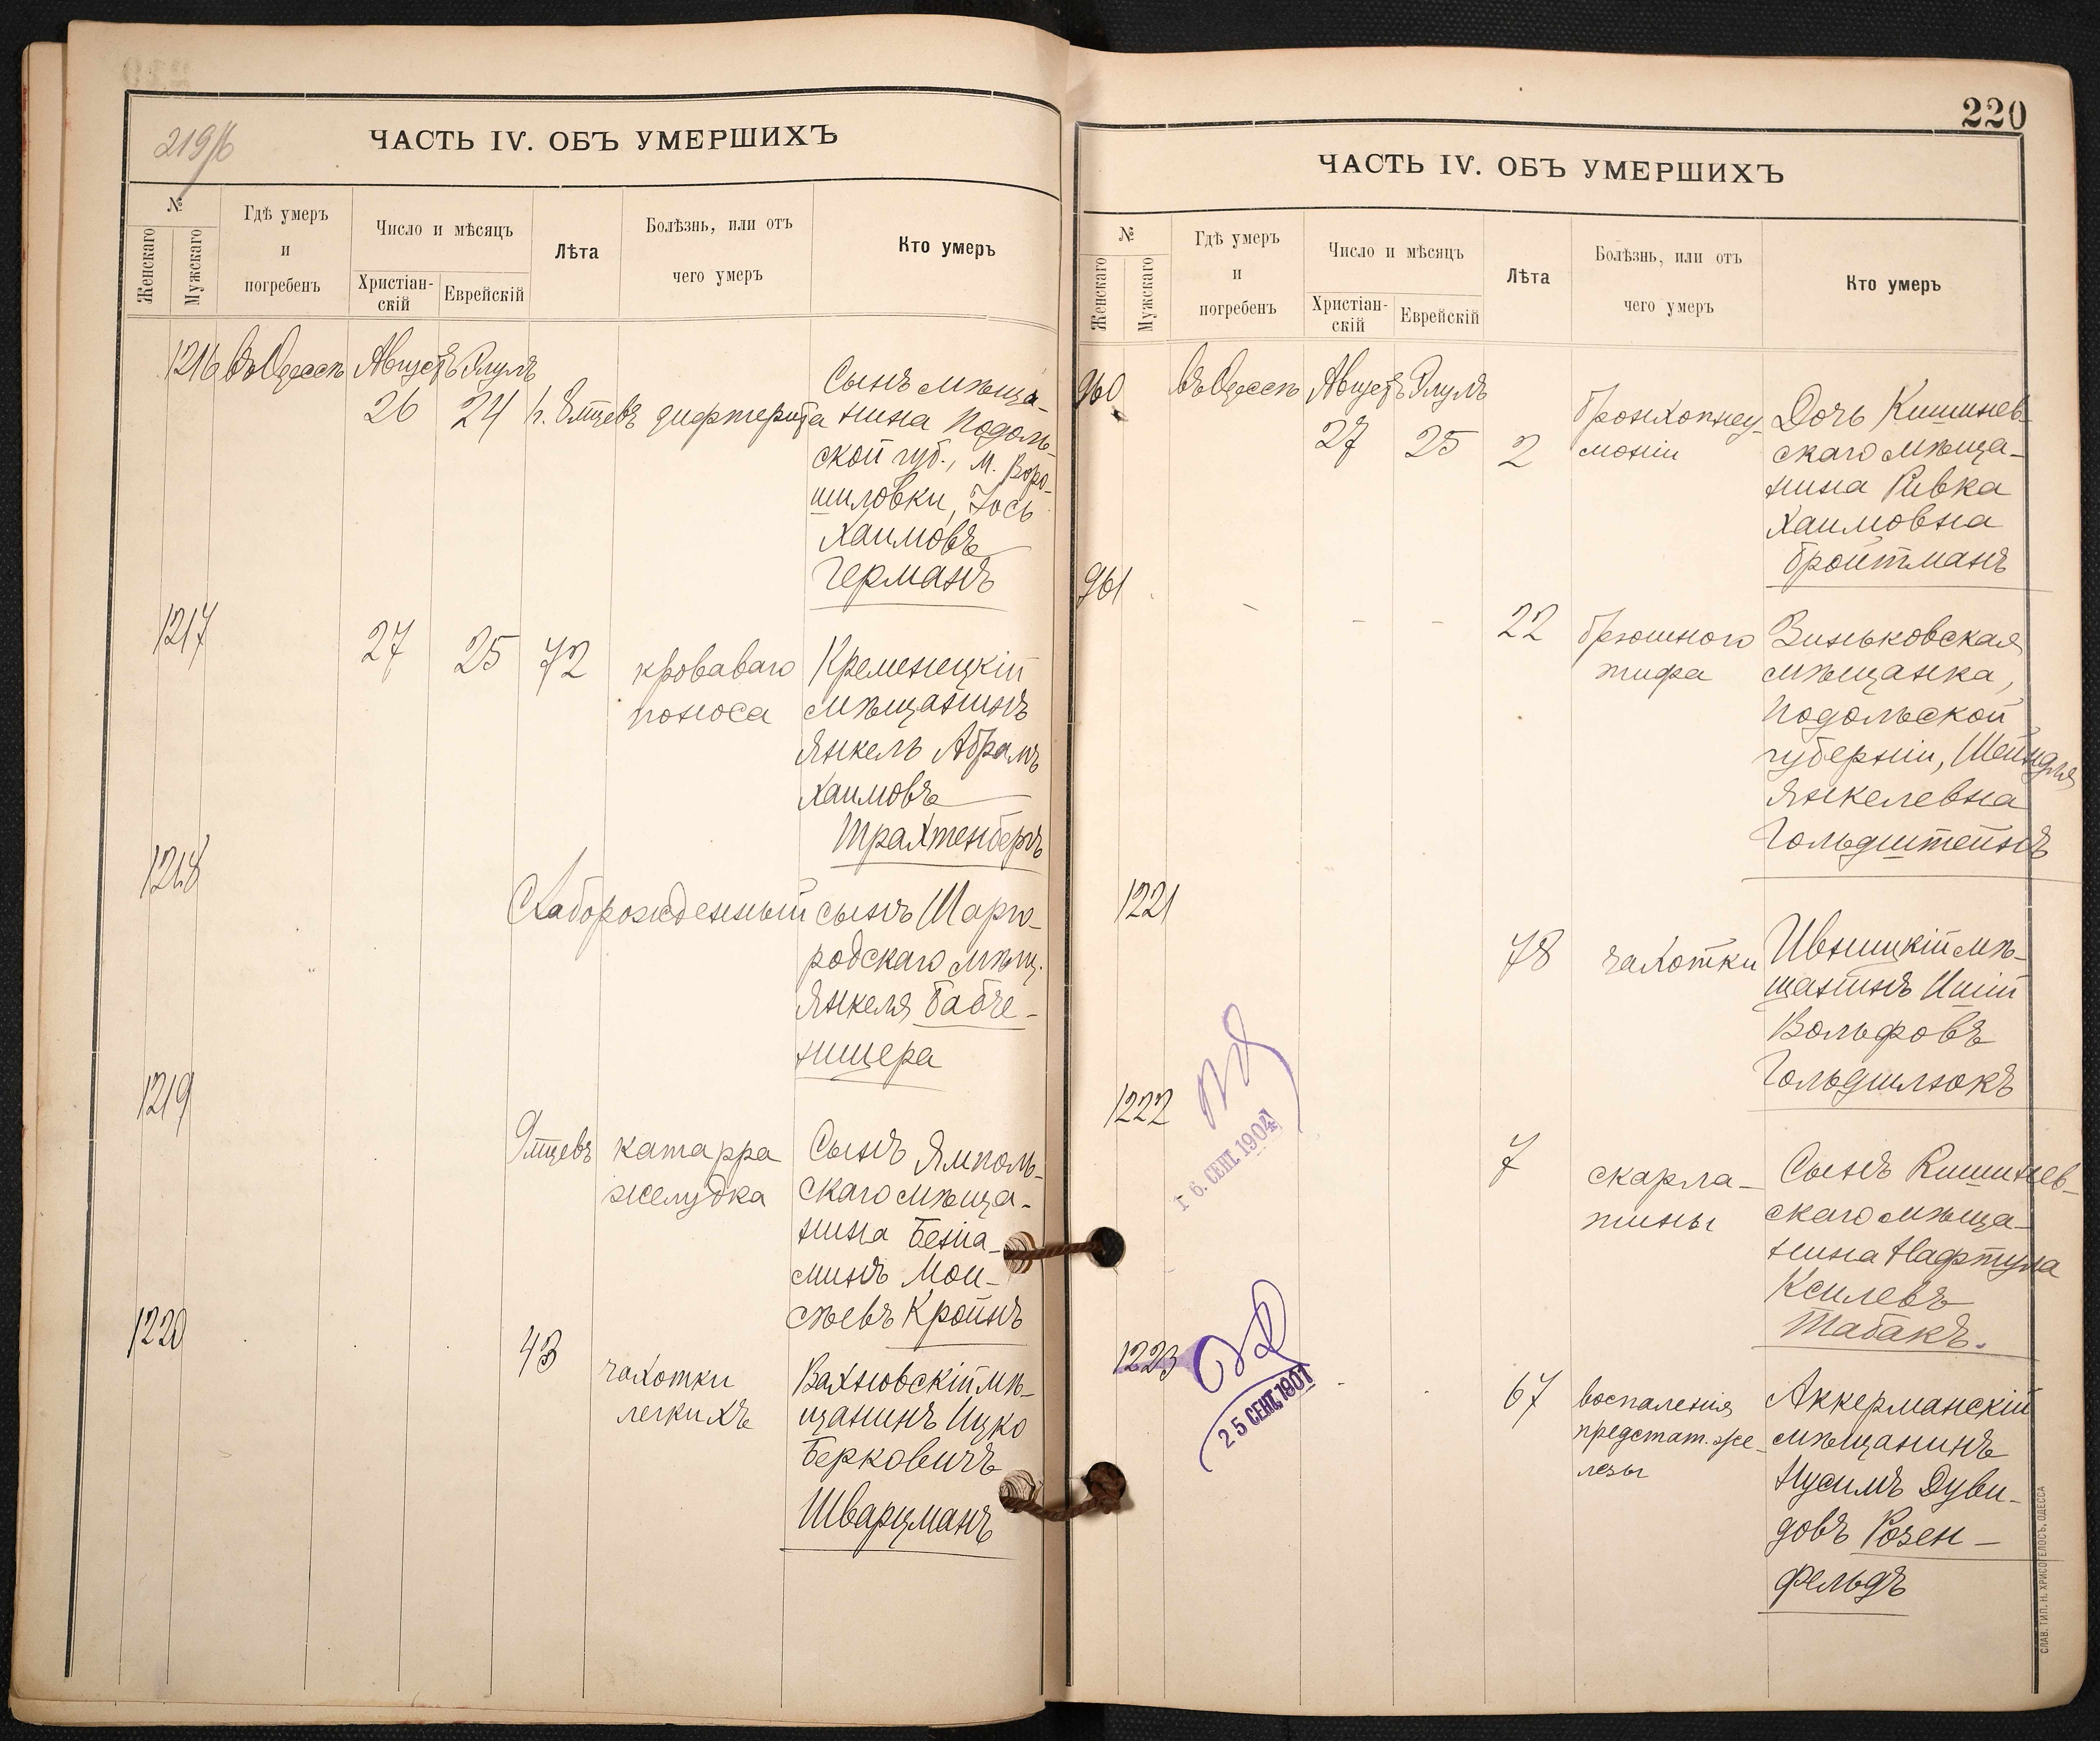 219/б
ЧАСТЬ IV. ОБЪ УМЕРШИХЪ
№
Женскаго
Мужскаго
Гдѣ умеръ
и
погребенъ
Число и мѣсяцъ
Христіан-
скій
Еврейскій
Лѣта
Болѣзнь, или отъ
чего умеръ
Кто умеръ
1216 въ Одессѣ Августъ Элулъ
26 24 дифтерита
Сынъ мѣща-
нина Подоль-
ской губ., м. Воро-
шиловки, Іось
Хаимовъ
Германъ
1217
27 25 72
кроваваго
поноса
Кременецкій
мѣщанинъ
Янкель Абрамъ
Хаимовъ
Трахтенбергъ
1218
Слаборожденный сынъ Шарго-
родскаго мѣщ.
Янкеля Бабче-
ницера
1219
9 мцевъ
катарра
желудка
Сынъ Ямполь-
скаго мѣща-
нина Беніа-
минъ Мои-
сѣевъ Кройнъ
1220
43
чахотки
легкихъ
Вахновскій мѣ-
щанинъ Ицко
Берковичъ
Шварцманъ
220
ЧАСТЬ IV. ОБЪ УМЕРШИХЪ
№
Женскаго
Мужскаго
Гдѣ умеръ
и
погребенъ
Число и мѣсяцъ
Христіан-
скій
Еврейскій
Лѣта
Болѣзнь, или отъ
чего умеръ
Кто умеръ
960 въ Одессѣ Августъ Элулъ
27 25 2
бронхопнеу-
моніи
Дочь Кишинев-
скаго мѣща-
нина Ривка
Хаимовна
Бройтманъ
961
22
брюшного
тифа
Зиньковская
мѣщанка,
Подольской
губерніи, Шейндля
Янкелевна
Гольдштейнъ
1221
78
чахотки
Ивницкій мѣ-
щанинъ Ишій
Вольфовъ
Гольдшлюкъ
1222
7
скарла-
тины
Сынъ Кишинев-
скаго мѣща-
нина Нафтула
Ксилевъ
Табакъ.
16. СЕНТ. 1904
1223
25 СЕНТ. 1901
67
воспаленія
предстат. же-
лезы
Аккерманскій
мѣщанинъ
Нусимъ Дуви-
довъ Розен-
фельдъ
СЛАВ. ТИП. Н. ХРИСОГЕЛОСЪ, ОДЕССА